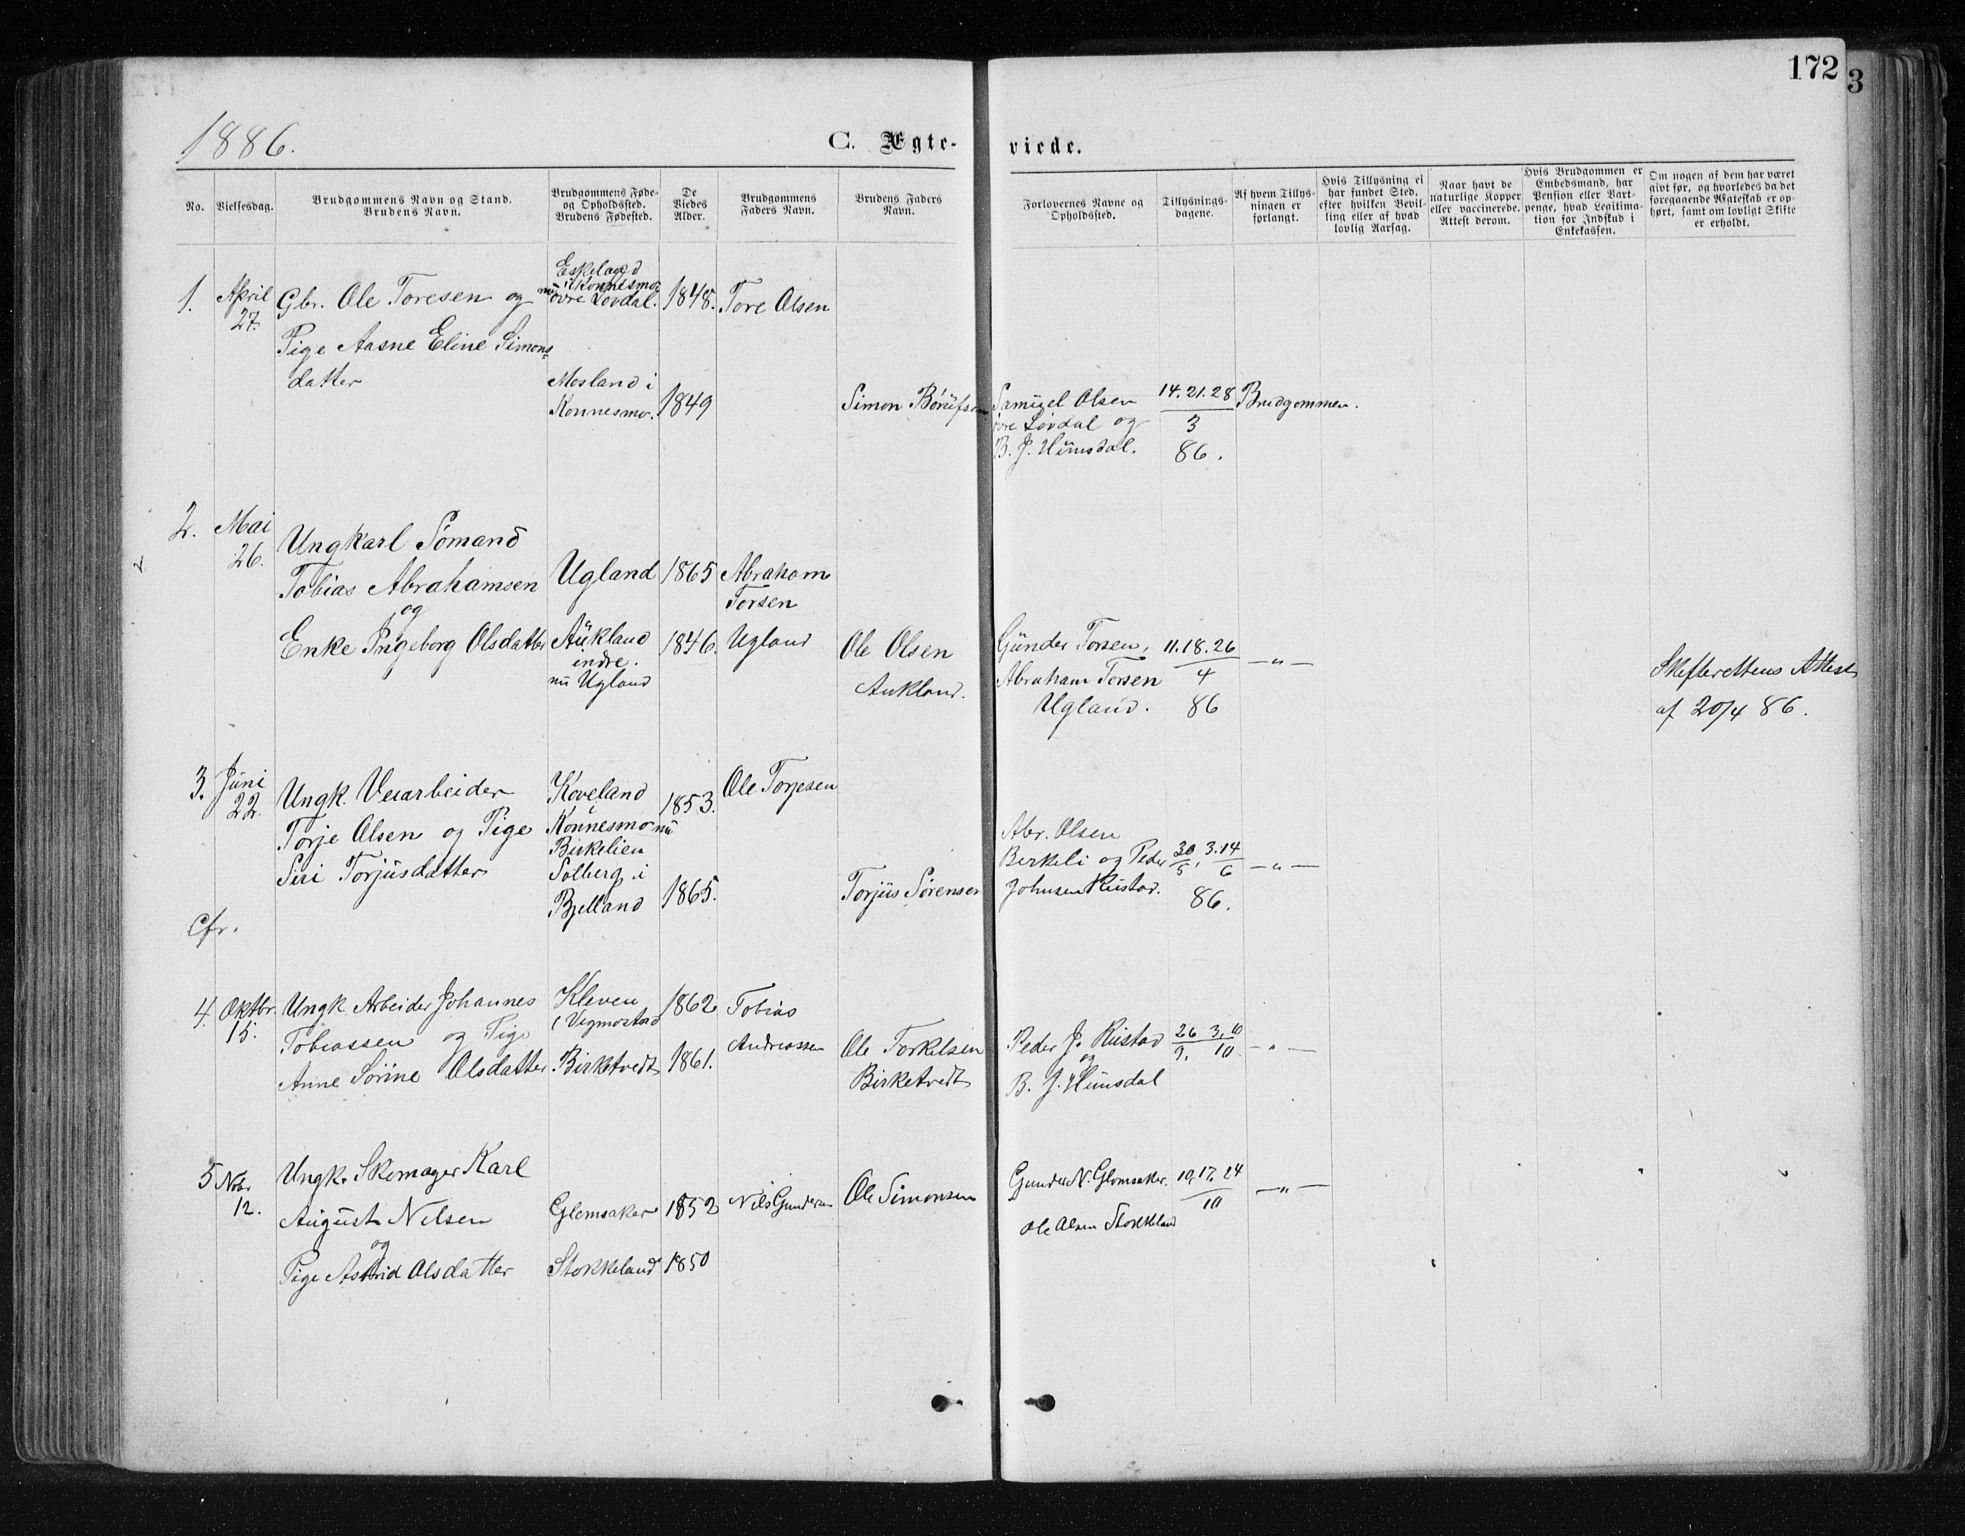 172
3
1886.
C. Ægte-viede.
No.
Vielsesdag.
Brudgommens Navn og Stand.
Brudens Navn.
Brudgommens Føde-
og Opholdssted.
Brudens Fødested.
De
Viedes
Alder.
Brudgommens
Faders Navn.
Brudens Faders
Navn.
Forlovernes Navne og
Opholdssted.
Tillysnings-
dagene.
Af hvem Tillys-
ningen er
forlangt.
Hvis Tillysning ei
har fundet Sted,
efter hvilken Bevil-
ling eller af hvad
lovlig Aarsag.
Naar havt de
naturlige Kopper
eller vaccinerede.
Attest derom.
Hvis Brudgommen er
Embedsmand, har
Pension eller Vart-
penge, hvad Legitima-
tion for Indskud i
Enkekassen.
Om nogen af dem har været
givt før, og hvorledes da det
foregaaende Ægteskab er op-
hørt, samt om lovligt Skifte
er erholdt.
1.
April
27.
Gbr. Ole Toresen og
Pige Aasne Eline Simons-
datter
Eskeland
i Konnesmo
nu øvre Løvdal.
Mosland i
Konnesmo.
1848.
1849
Tore Olsen
Simon Børufsen
Samuel Olsen
øvre Løvdal og
B. J. Hunsdal.
14. 21. 28
3
86.
Brudgommen.
2.
Mai
26.
Ungkarl Sømand
Tobias Abrahamsen
og
Enke Ingeborg Olsdatter
Ugland
Aukland
indre.
nu Ugland
1865
1846.
Abraham
Torsen
Ugland
Ole Olsen
Aukland.
Gunder Torsen,
Abraham Torsen
Ugland.
11. 18. 26
4
86
—„—
Skifterettens Attest
af 20/4 86.
3.
Juni
22.
Ungk. Veiarbeider
Torje Olsen og Pige
Siri Torjusdatter
Koveland
Konnesmo nu
Birkelien
Solberg i
Bjelland
1853.
1865.
Ole Torjesen
Torjus Sørensen
Abr. Olsen
Birkeli og Peder
Johnsen Rustad.
30/5, 3. 14/6
86.
—„—
Cfr.
4.
Oktbr.
15.
Ungk. Arbeider Johannes
Tobiassen og Pige
Anne Sørine Olsdatter
Kleven
i Vegmostad
Birketvedt
1862
1861.
Tobias
Andreassen
Ole Torkelsen
Birketvedt
Peder J. Rustad
og
B. J. Hunsdal
26/9. 3, 10/10.
—„—
5
Nobr
12.
Ungk. Skomager Karl
August Nilsen
og
Pige Astrid Olsdatter
Glomsaker
Stokkeland
1852
1850
Nils Gundersen
Ole Simonsen
Gunder N. Glomsaker.
Ole Olsen Stokkeland
10, 17. 24
10
—„—